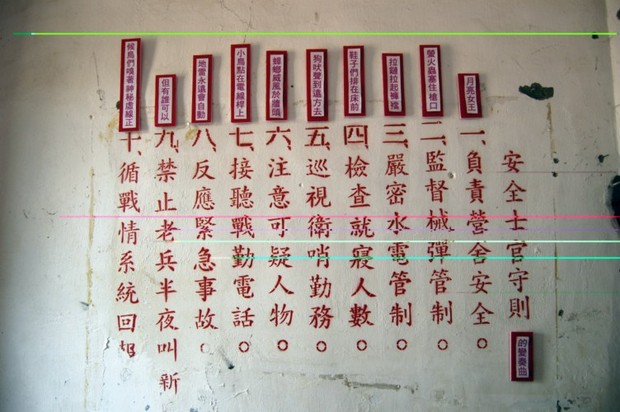 安全士官守則
的變奏曲
月亮女王
一、負責營舍安全。
螢火蟲塞住槍口
二、監督械彈管制。
拉鏈拉起褲襠
三、嚴密水電管制。
鞋子們排在床前
四、檢查就寢人數。
狗吠聲到遠方去
五、巡視衛哨勤務。
蟑螂威風於牆頭
六、注意可疑人物。
小鳥點在電線桿上
七、接聽戰勤電話。
地雷永遠會自動
八、反應緊急事故。
但有誰可以
九、禁止老兵半夜叫新
候鳥們嗅著神秘虛線正
十、循戰情系統回報